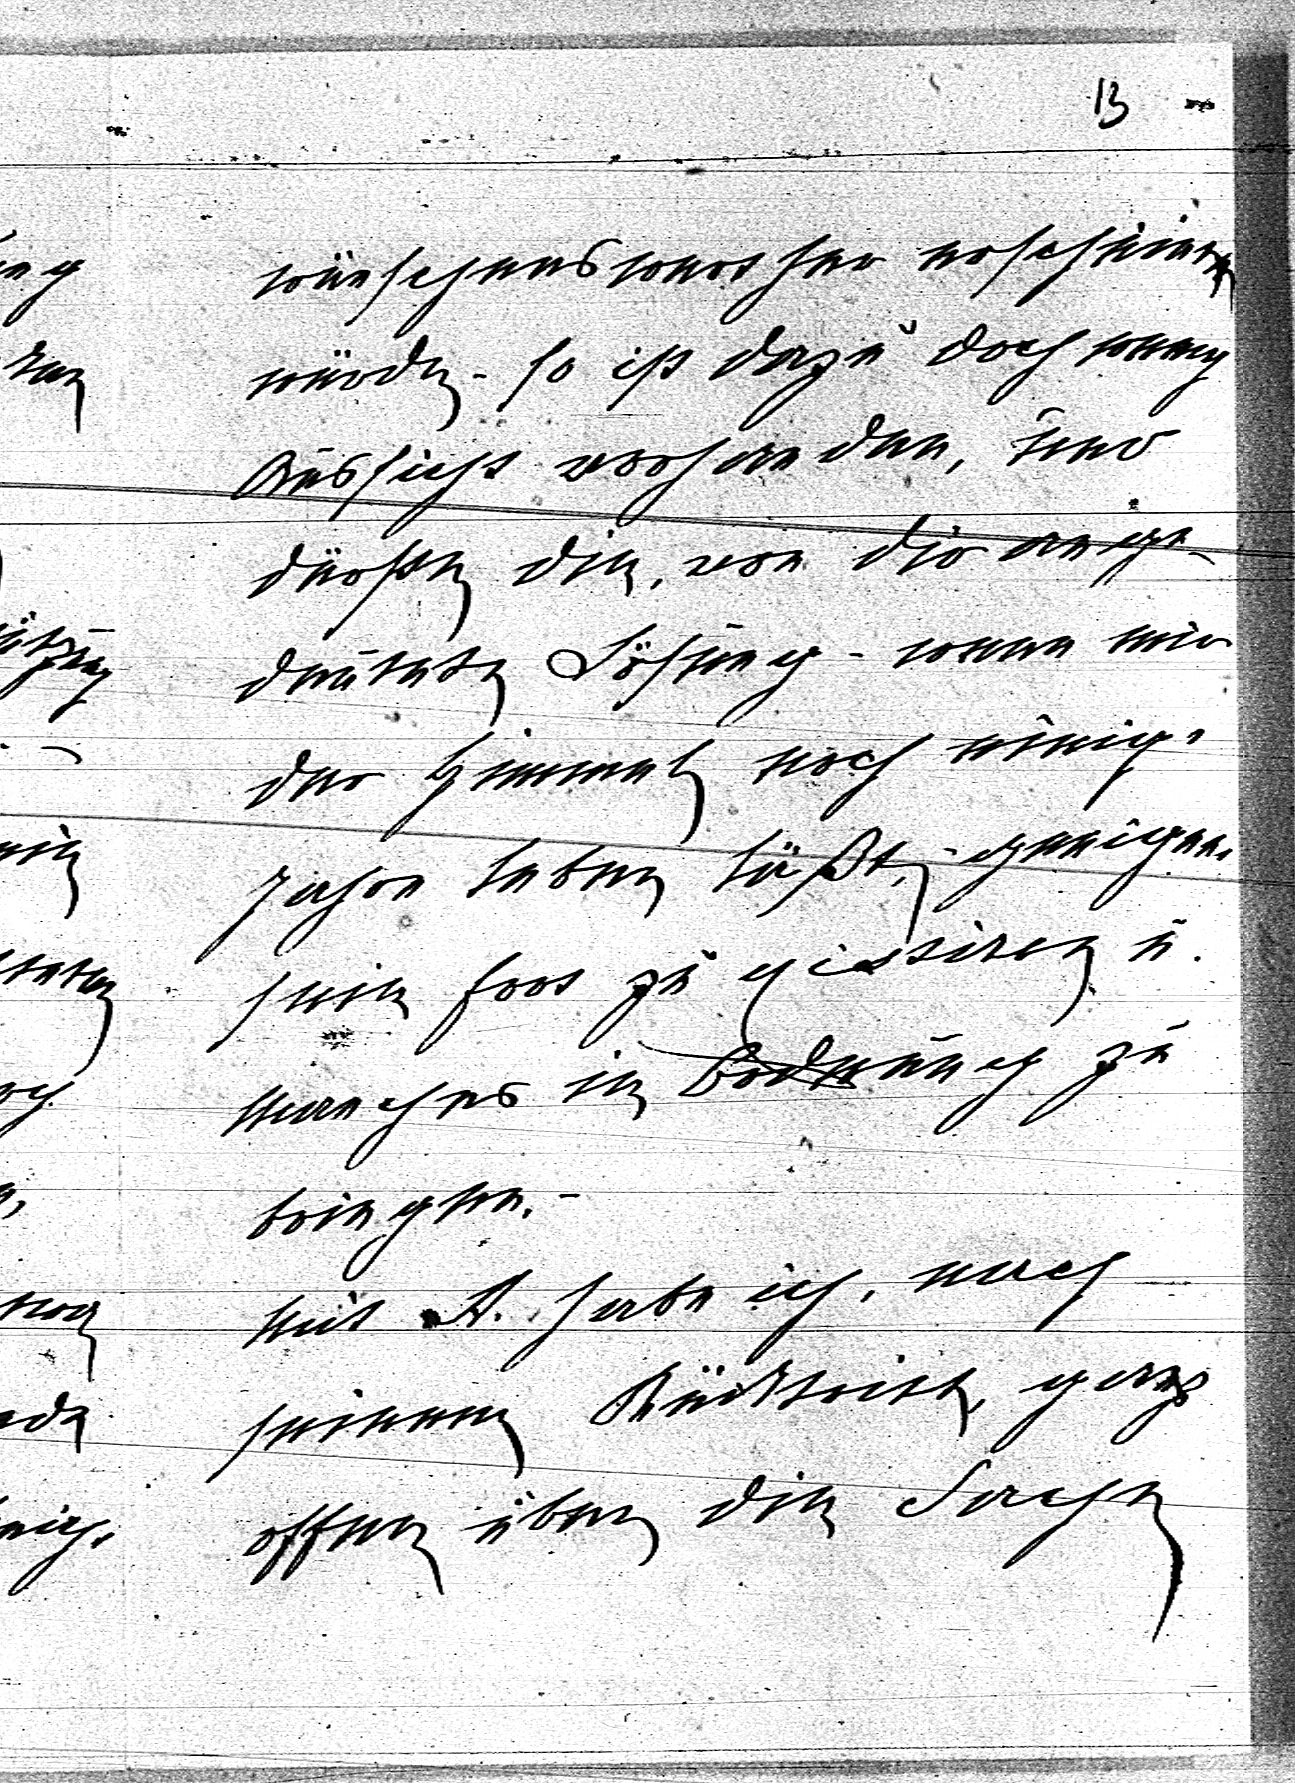 13
wünschenswerther erscheinen
würde - so ist dazu doch wenig
Aussicht vorhanden, und
dürfte die, von dir ange-
deutete Lösung - wenn mir
der Himmel noch einige
Jahre leben läßt, - geeignet
sein fort zu u.
Manches in Ordnung zu
bringen. -
Mit A. habe ich, nach
seinem Rücktritt, ganz
offen über die Sache